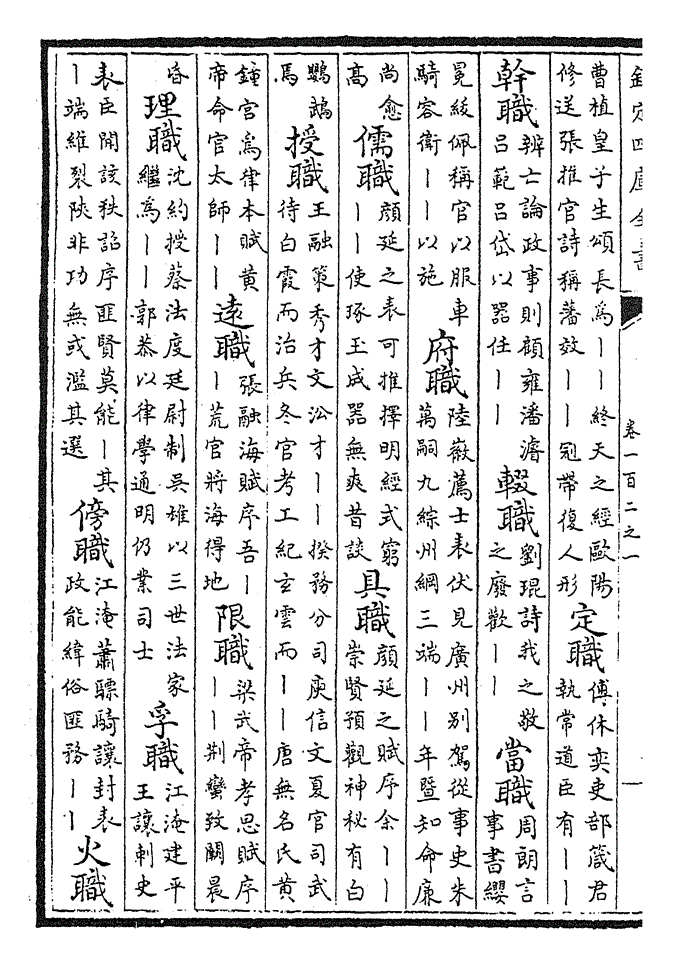 欽定四庫全書
卷一百二之一
曹植皇子生頌長爲丨丨終天之經歐陽
修送張推官詩稱藩效丨丨冠帶復人形
定職
傅休奕吏部箴君
執常道臣有丨丨
幹職
辨亡論政事則顧雍潘濬
呂範呂岱以器任丨丨
輟職
劉琨詩我之敬
之廢歡丨丨
當職
周朗言
事書纓
冕紱佩稱官以服車
騎容衛丨丨以施
府職
陸厥薦士表伏見廣州别駕從事史朱
萬嗣九綜州綱三端丨丨年暨知命廉
尚愈
高
儒職
顔延之表可推擇明經式窮
丨丨使琢玉成器無爽昔談
具職
顔延之賦序余丨丨
崇賢預觀神秘有白
鸚鵡
焉
授職
王融策秀才文訟才丨丨揆務分司庾信文夏官司武
待白霞而治兵冬官考工紀玄雲而丨丨唐無名氏黄
鍾宫爲律本賦黄
帝命官太師丨丨
遠職
張融海賦序吾丨
丨荒官將海得地
限職
梁武帝孝思賦序
丨丨荆蠻致闕晨
昏
理職
沈約授蔡法度廷尉制吳雄以三世法家
繼爲丨丨郭恭以律學通明仍業司士
孚職
江淹建平
王讓刺史
表臣聞該秩諂序匪賢莫能丨其
丨端維裂陝非功無或濫其選
傍職
江淹蕭驃騎讓封表
政能緯俗匪務丨丨
火職